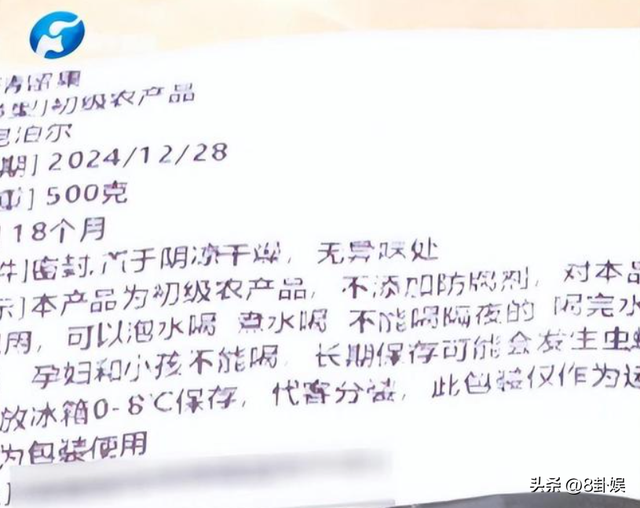 青留果
类型]初级农产品
尼泊尔
期] 2024/12/28
] 500克
18个月
件]密封,于阴凉干燥，无异味处
示]本产品为初级农产品，不添加防腐剂，对本品
用，可以泡水喝 煮水喝 不能喝隔夜的 喝完水
，孕妇和小孩不能喝，长期保存可能会发生虫
放冰箱0-8℃保存，代客分装，此包装仅作为运
为包装使用
]
头条 @8卦娱